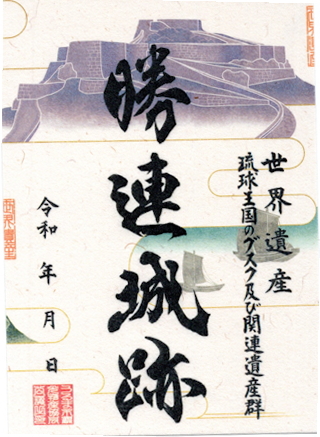 世界遺産
琉球王国のグスク及び関連遺産群
勝連城跡
令和 年 月 日